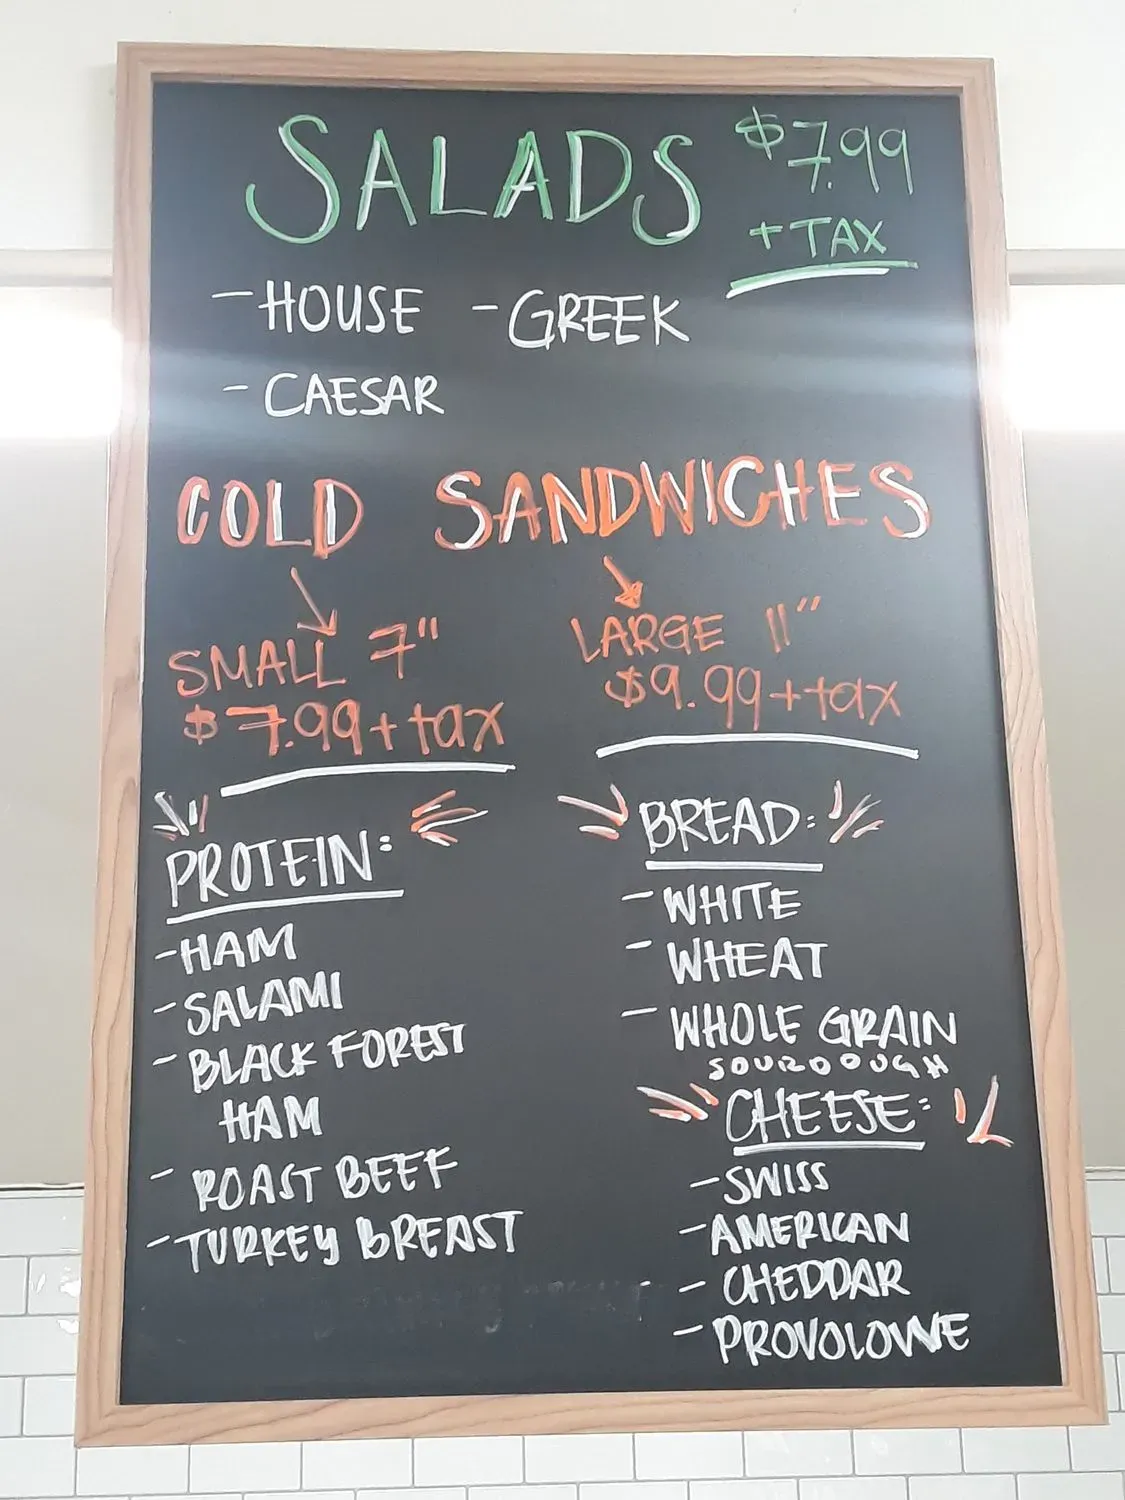 SALADS $7.99
+ TAX
- HOUSE - GREEK
- CAESAR
COLD SANDWICHES
SMALL 7"
$7.99 + tax
LARGE 11"
$9.99 + tax
PROTEIN:
- HAM
- SALAMI
- BLACK FOREST
HAM
- ROAST BEEF
- TURKEY BREAST
BREAD:
- WHITE
- WHEAT
- WHOLE GRAIN
SOURDOUGH
CHEESE:
- SWISS
- AMERICAN
- CHEDDAR
- PROVOLOWNE